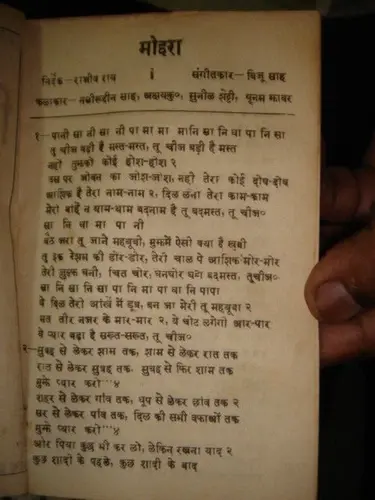 मोहरा
निर्देक—राजीव राय संगीतकार—विजू साह
कलाकार—नसीरूद्दीन साह, अक्षयकु०, सुनील शेट्टी, पूनम झावर
१—पानी सा नी सा नी पा मा मा मा नि सा नि धा पा नि सा
तू चीज बड़ी है मस्त-मस्त, तू चीज बड़ी है मस्त
नहीं तुझको कोई होश-होश २
उस पर जोबन का जोश-जोश, नहीं तेरा कोई दोष-दोष
आशिक है तेरा नाम-नाम २, दिल लेना तेरा काम-काम
मेरी बांहें न थाम-थाम बदनाम है तू बदमस्त, तू चीज०
सा नि धा मा पा नी
बैठ जरा तू जाने महबूबी, मुझमें ऐसी क्या है खूबी
तू इक रेशम की डोर-डोर, तेरी चाल पे आशिक मोर-मोर
तेरी जुल्फ घनी, चित चोर, घनघोर घटा बदमस्त, तूचीज०
सा नि सा नि सा पा नि मा पा धा नि पापा
ये दिल तेरी आंखें में डूबा, बन जा मेरी तू महबूबा २
मत तीर नजर के मार-मार २, ये चोट लगेगी आर-पार
ये प्यार बढ़ा है सख्त-सख्त, तू चीज०
२—सुबह से लेकर शाम तक, शाम से लेकर रात तक
रात से लेकर सुबह तक, सुबह से फिर शाम तक
मुझे प्यार करो···४
शहर से लेकर गांव तक, धूप से लेकर छांव तक २
सर से लेकर पांव तक, दिल की सभी वफाओं तक
मुझे प्यार करो···४
ओर पिया कुछ भी कर लो, लेकिन रखना याद २
कुछ शादी के पहले, कुछ शादी के बाद